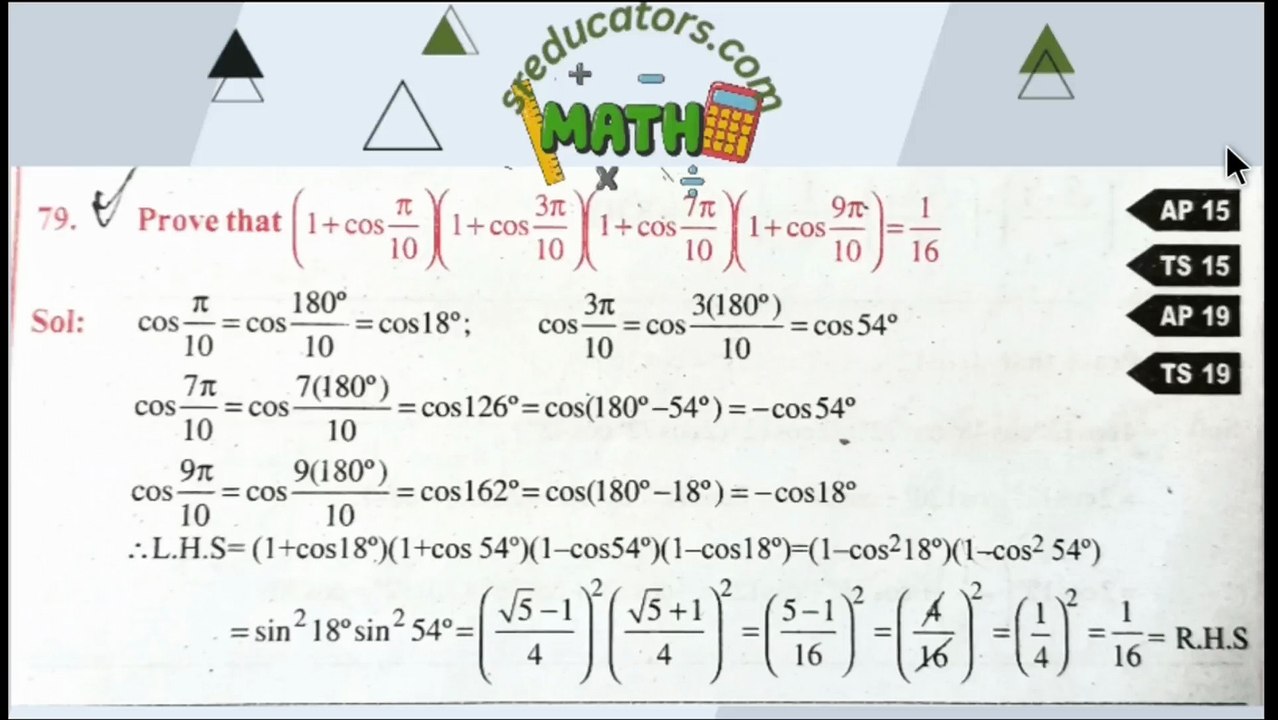 sreducators.com
+ −
MATH
× ÷
79. Prove that (1+cos π/10)(1+cos 3π/10)(1+cos 7π/10)(1+cos 9π/10)=1/16
AP 15
TS 15
AP 19
TS 19
Sol: cos π/10 = cos 180°/10 = cos18°; cos 3π/10 = cos 3(180°)/10 = cos 54°
cos 7π/10 = cos 7(180°)/10 = cos126° = cos(180°−54°) = −cos 54°
cos 9π/10 = cos 9(180°)/10 = cos162° = cos(180°−18°) = −cos18°
∴L.H.S= (1+cos18°)(1+cos 54°)(1−cos54°)(1−cos18°)=(1−cos²18°)(1−cos² 54°)
= sin² 18° sin² 54° = ((√5−1)/4)² ((√5+1)/4)² = ((5−1)/16)² = (4/16)² = (1/4)² = 1/16 = R.H.S